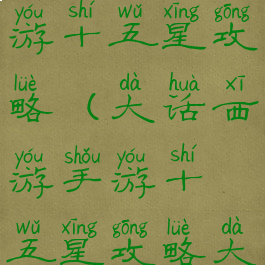 yóu shí wǔ xīng gōng
游十五星攻
lüè dà huà xī
略（大话西
yóu shǒu yóu shí
游手游十
wǔ xīng gōng lüè dà
五星攻略大